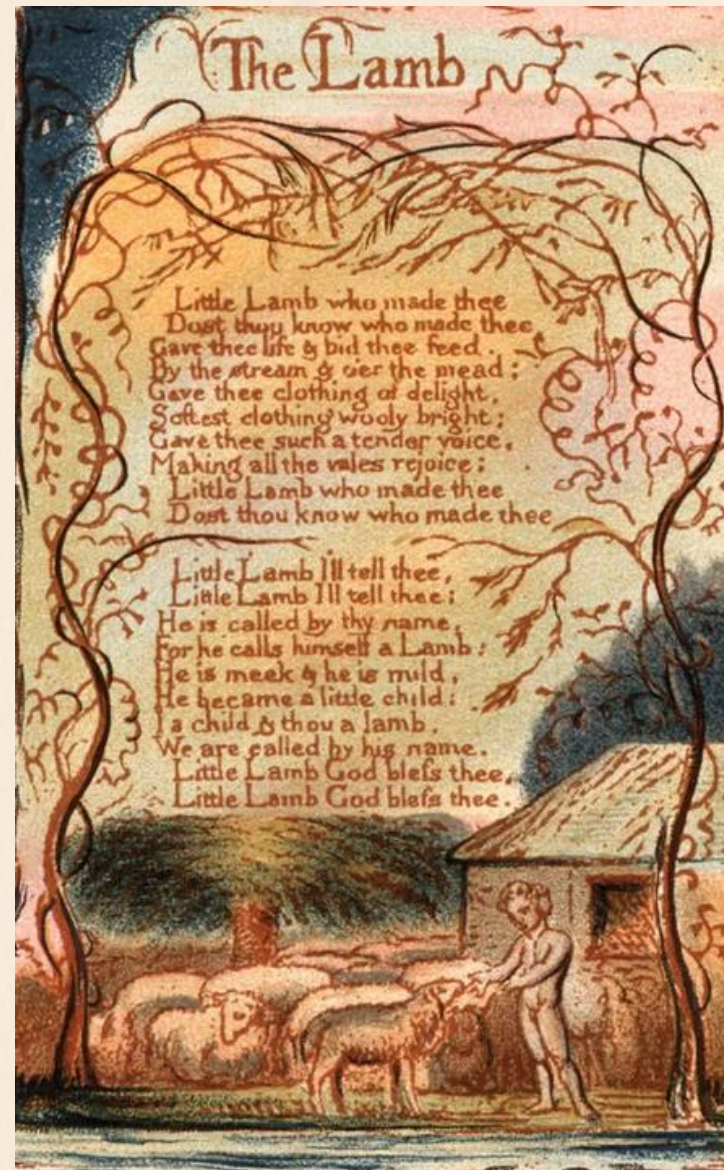 The Lamb
Little Lamb who made thee
Dost thou know who made thee
Gave thee life & bid thee feed.
By the stream & o'er the mead;
Gave thee clothing of delight,
Softest clothing wooly bright;
Gave thee such a tender voice,
Making all the vales rejoice:
Little Lamb who made thee
Dost thou know who made thee
Little Lamb I'll tell thee,
Little Lamb I'll tell thee:
He is called by thy name,
For he calls himself a Lamb:
He is meek & he is mild,
He became a little child:
I a child & thou a lamb,
We are called by his name.
Little Lamb God bleſs thee.
Little Lamb God bleſs thee.